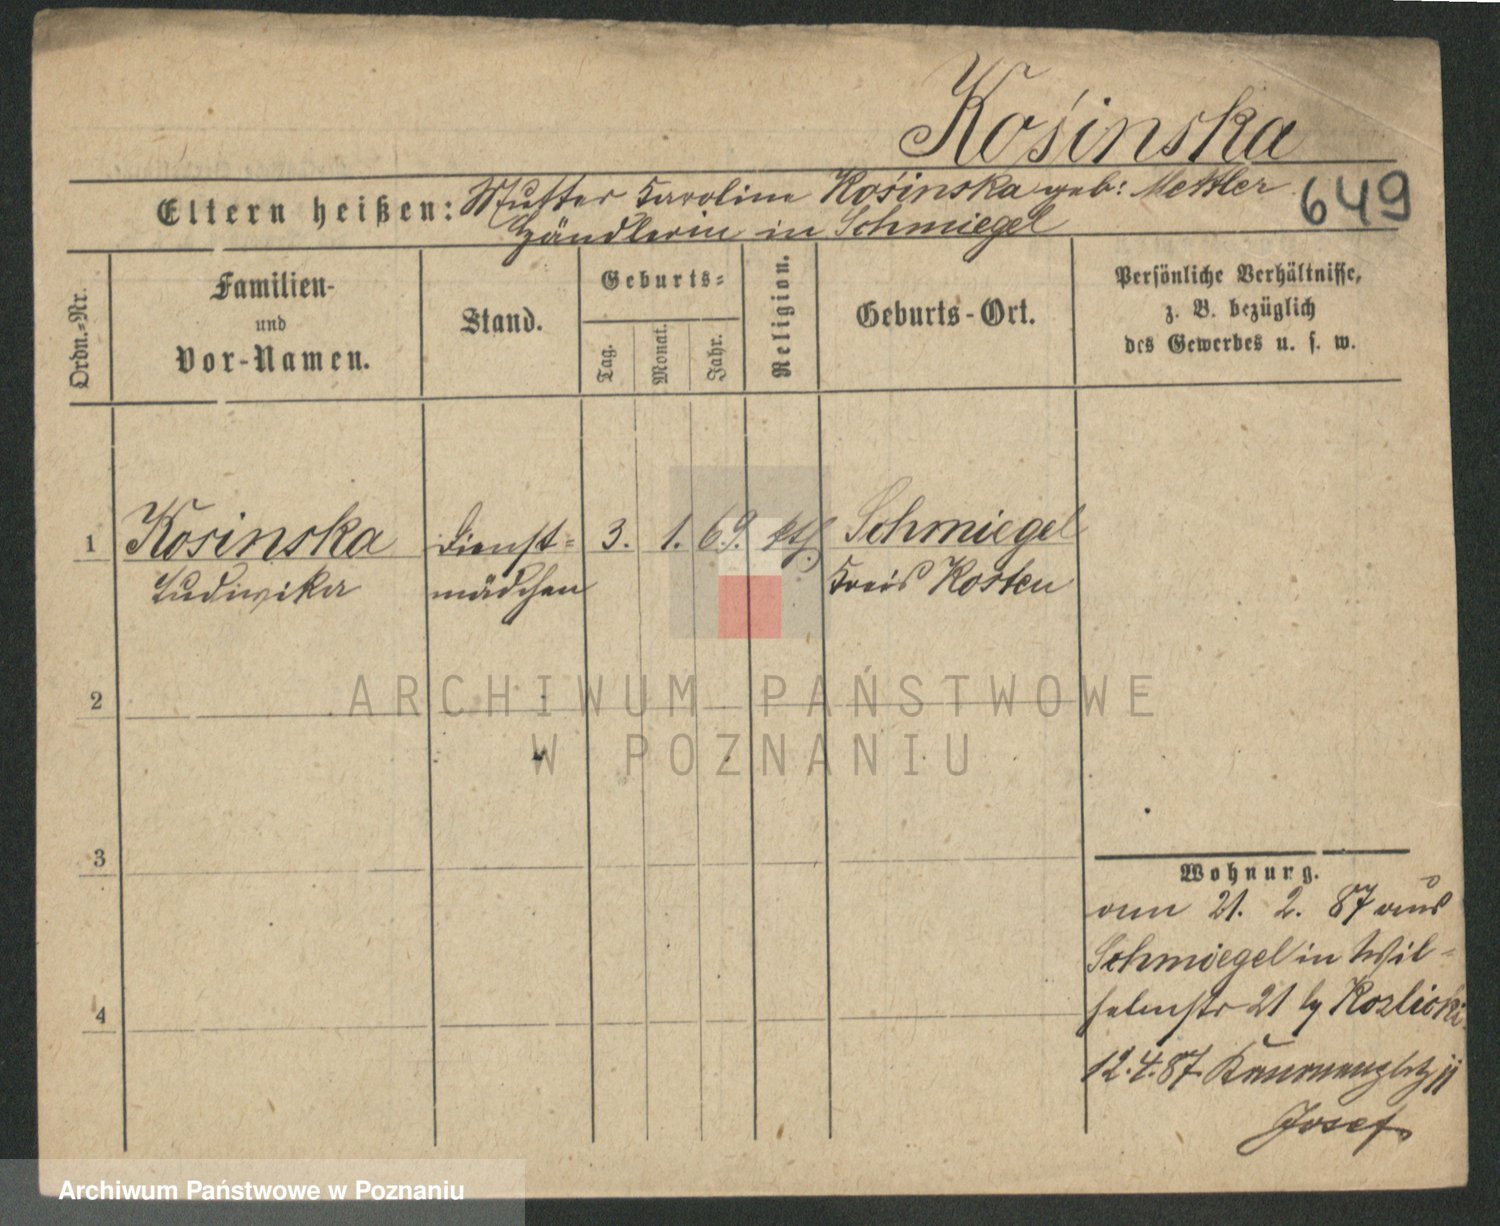 Kośinska
Eltern heißen: Mutter Karoline Kośinska geb: Mettler
Händlerin in Schmiegel
649
Ordn.-Nr.
Familien-
und
Vor-Namen.
Stand.
Geburts-
Tag.
Monat.
Jahr.
Religion.
Geburts-Ort.
Persönliche Verhältnisse,
z. B. bezüglich
des Gewerbes u. s. w.
1 Kosinska Dienst- 3. 1. 69. kth. Schmiegel
Ludwika mädchen Kreis Kosten
2
ARCHIWUM PAŃSTWOWE
W POZNANIU
3
Wohnung.
vom 21. 2. 87 aus
Schmiegel in Wil-
helmstr 21 by Kozlicki
12.4.87
Josef
4
Archiwum Państwowe w Poznaniu